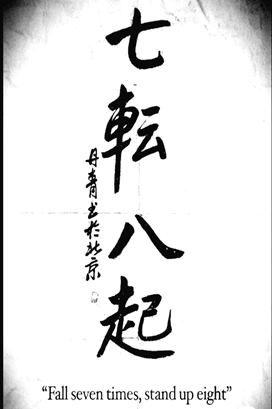 七転八起
丹青书於北京
“Fall seven times, stand up eight”